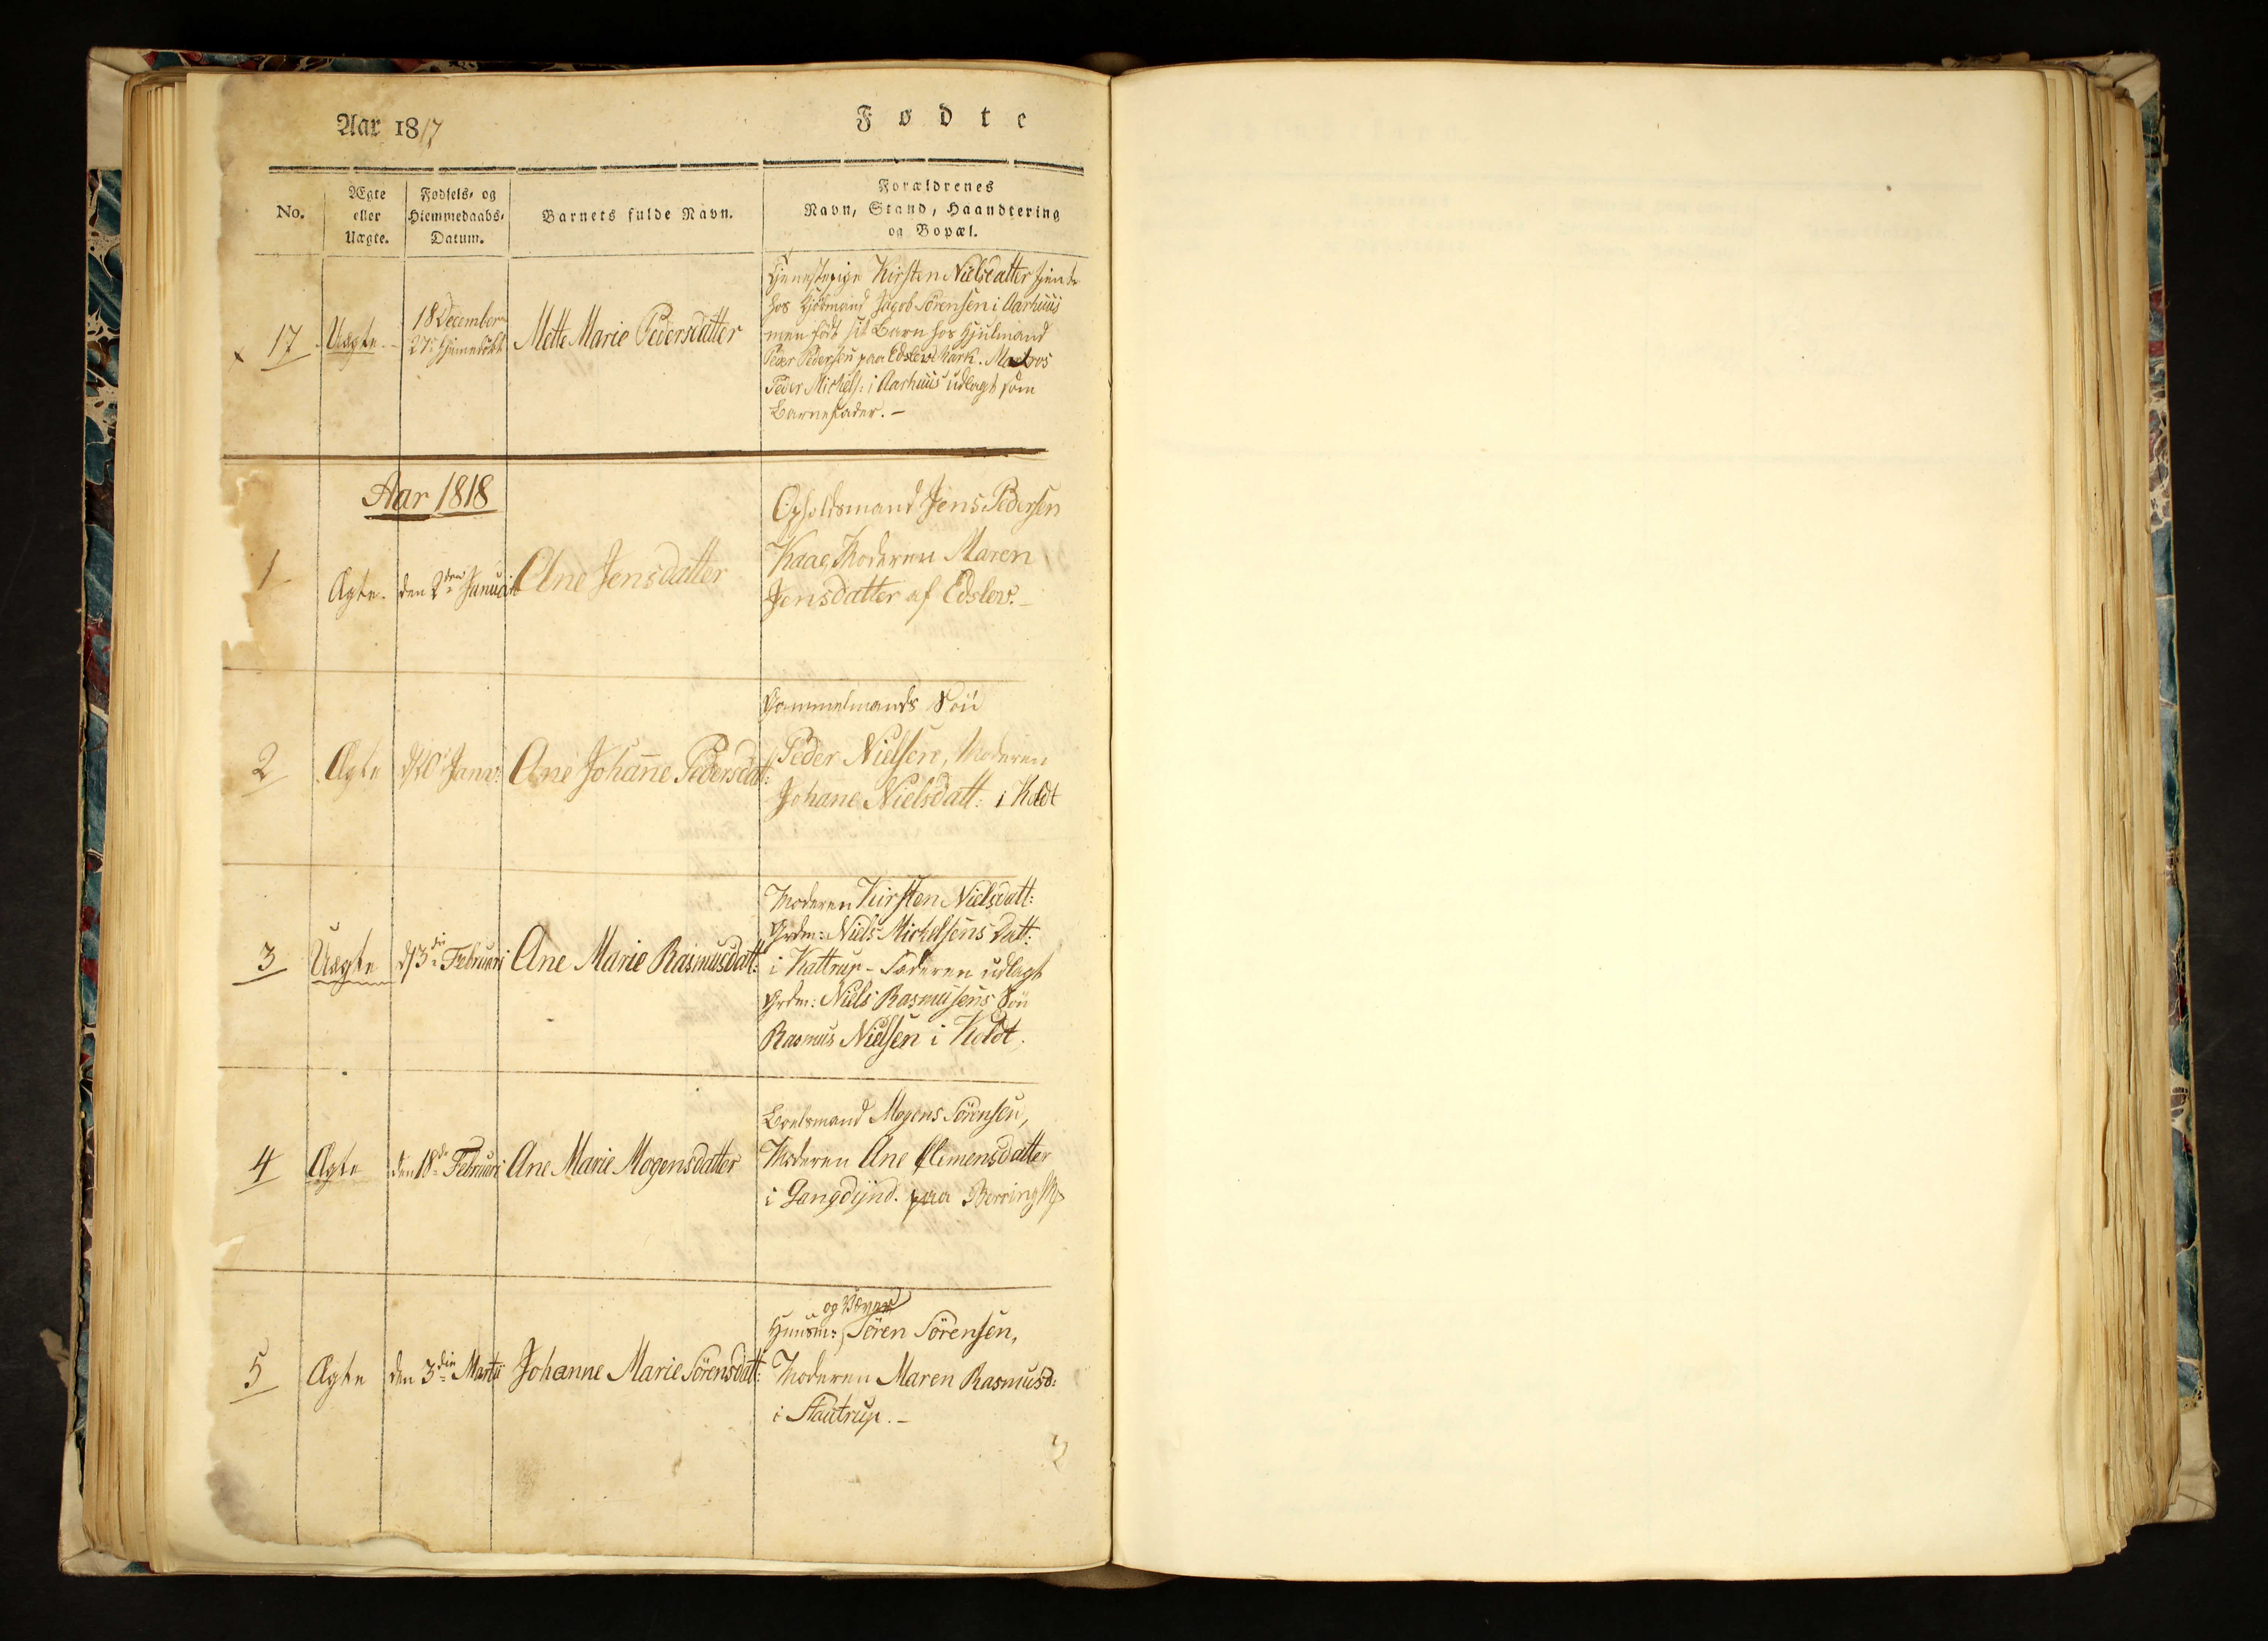 Aar 1817
Fødte
No.
Ægte
eller
Uægte.
Fødsels- og
Hiemmedaabs-
Datum.
Barnets fulde Navn.
Forældrenes
Navn, Stand, Haandtering
og Bopæl.
17
Uægte.
18 December
27. hjemedøbt
Mette Marie Pedersdatter
Tjenestepige Kirsten Nielsdatter tjente
hos Kjøbmand Jacob Sörensen i Aarhuus
men født sit Barn hos Hjulmand
Peder Pedersen paa Edslev Mark. Matros
Peder Michels: i Aarhuus udlagt som
Barnefader. -
Aar 1818
1
Ægte.
den 2den Januari
Ane Jensdatter
Opholdsmand Jens Pedersen
Kaae, Moderen Maren
Jensdatter af Edslev. -
2
Ægte
d 10 Janv:
Ane Johane Pedersdatt:
Gammelmands Søn
Peder Nielsen, Moderen
Johane Nielsdatt: i Koldt
3
Uægte
d 3die Februari
Ane Marie Rasmusdatt:
Moderen Kirsten Nielsdatt:
Grdm: Niels Michelsens Datt:
i Kattrup - Faderen udlagt
Grdm: Niels Rasmusens Søn
Rasmus Nielsen i Koldt.
4
Ægte
den 18de Februari
Ane Marie Mogensdatter
Boelsmand Mogens Sörensen,
Moderen Ane Clemensdatter
i Langdÿnd. paa
5
Ægte
den 3die Martii
Johanne Marie Sörensdatt:
og Væver
Huusm: Sören Sörensen,
Moderen Maren Rasmusd:
i Stautrup. -